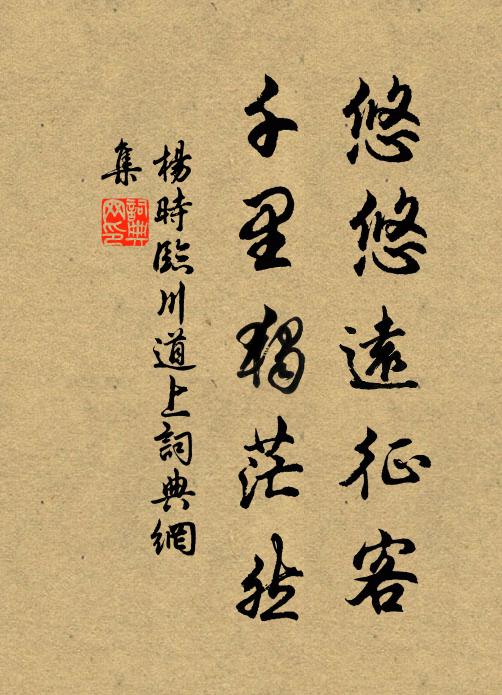 悠悠遠征客
千里獨茫然
楊時臨川道上詞典網
集
詞典
网印